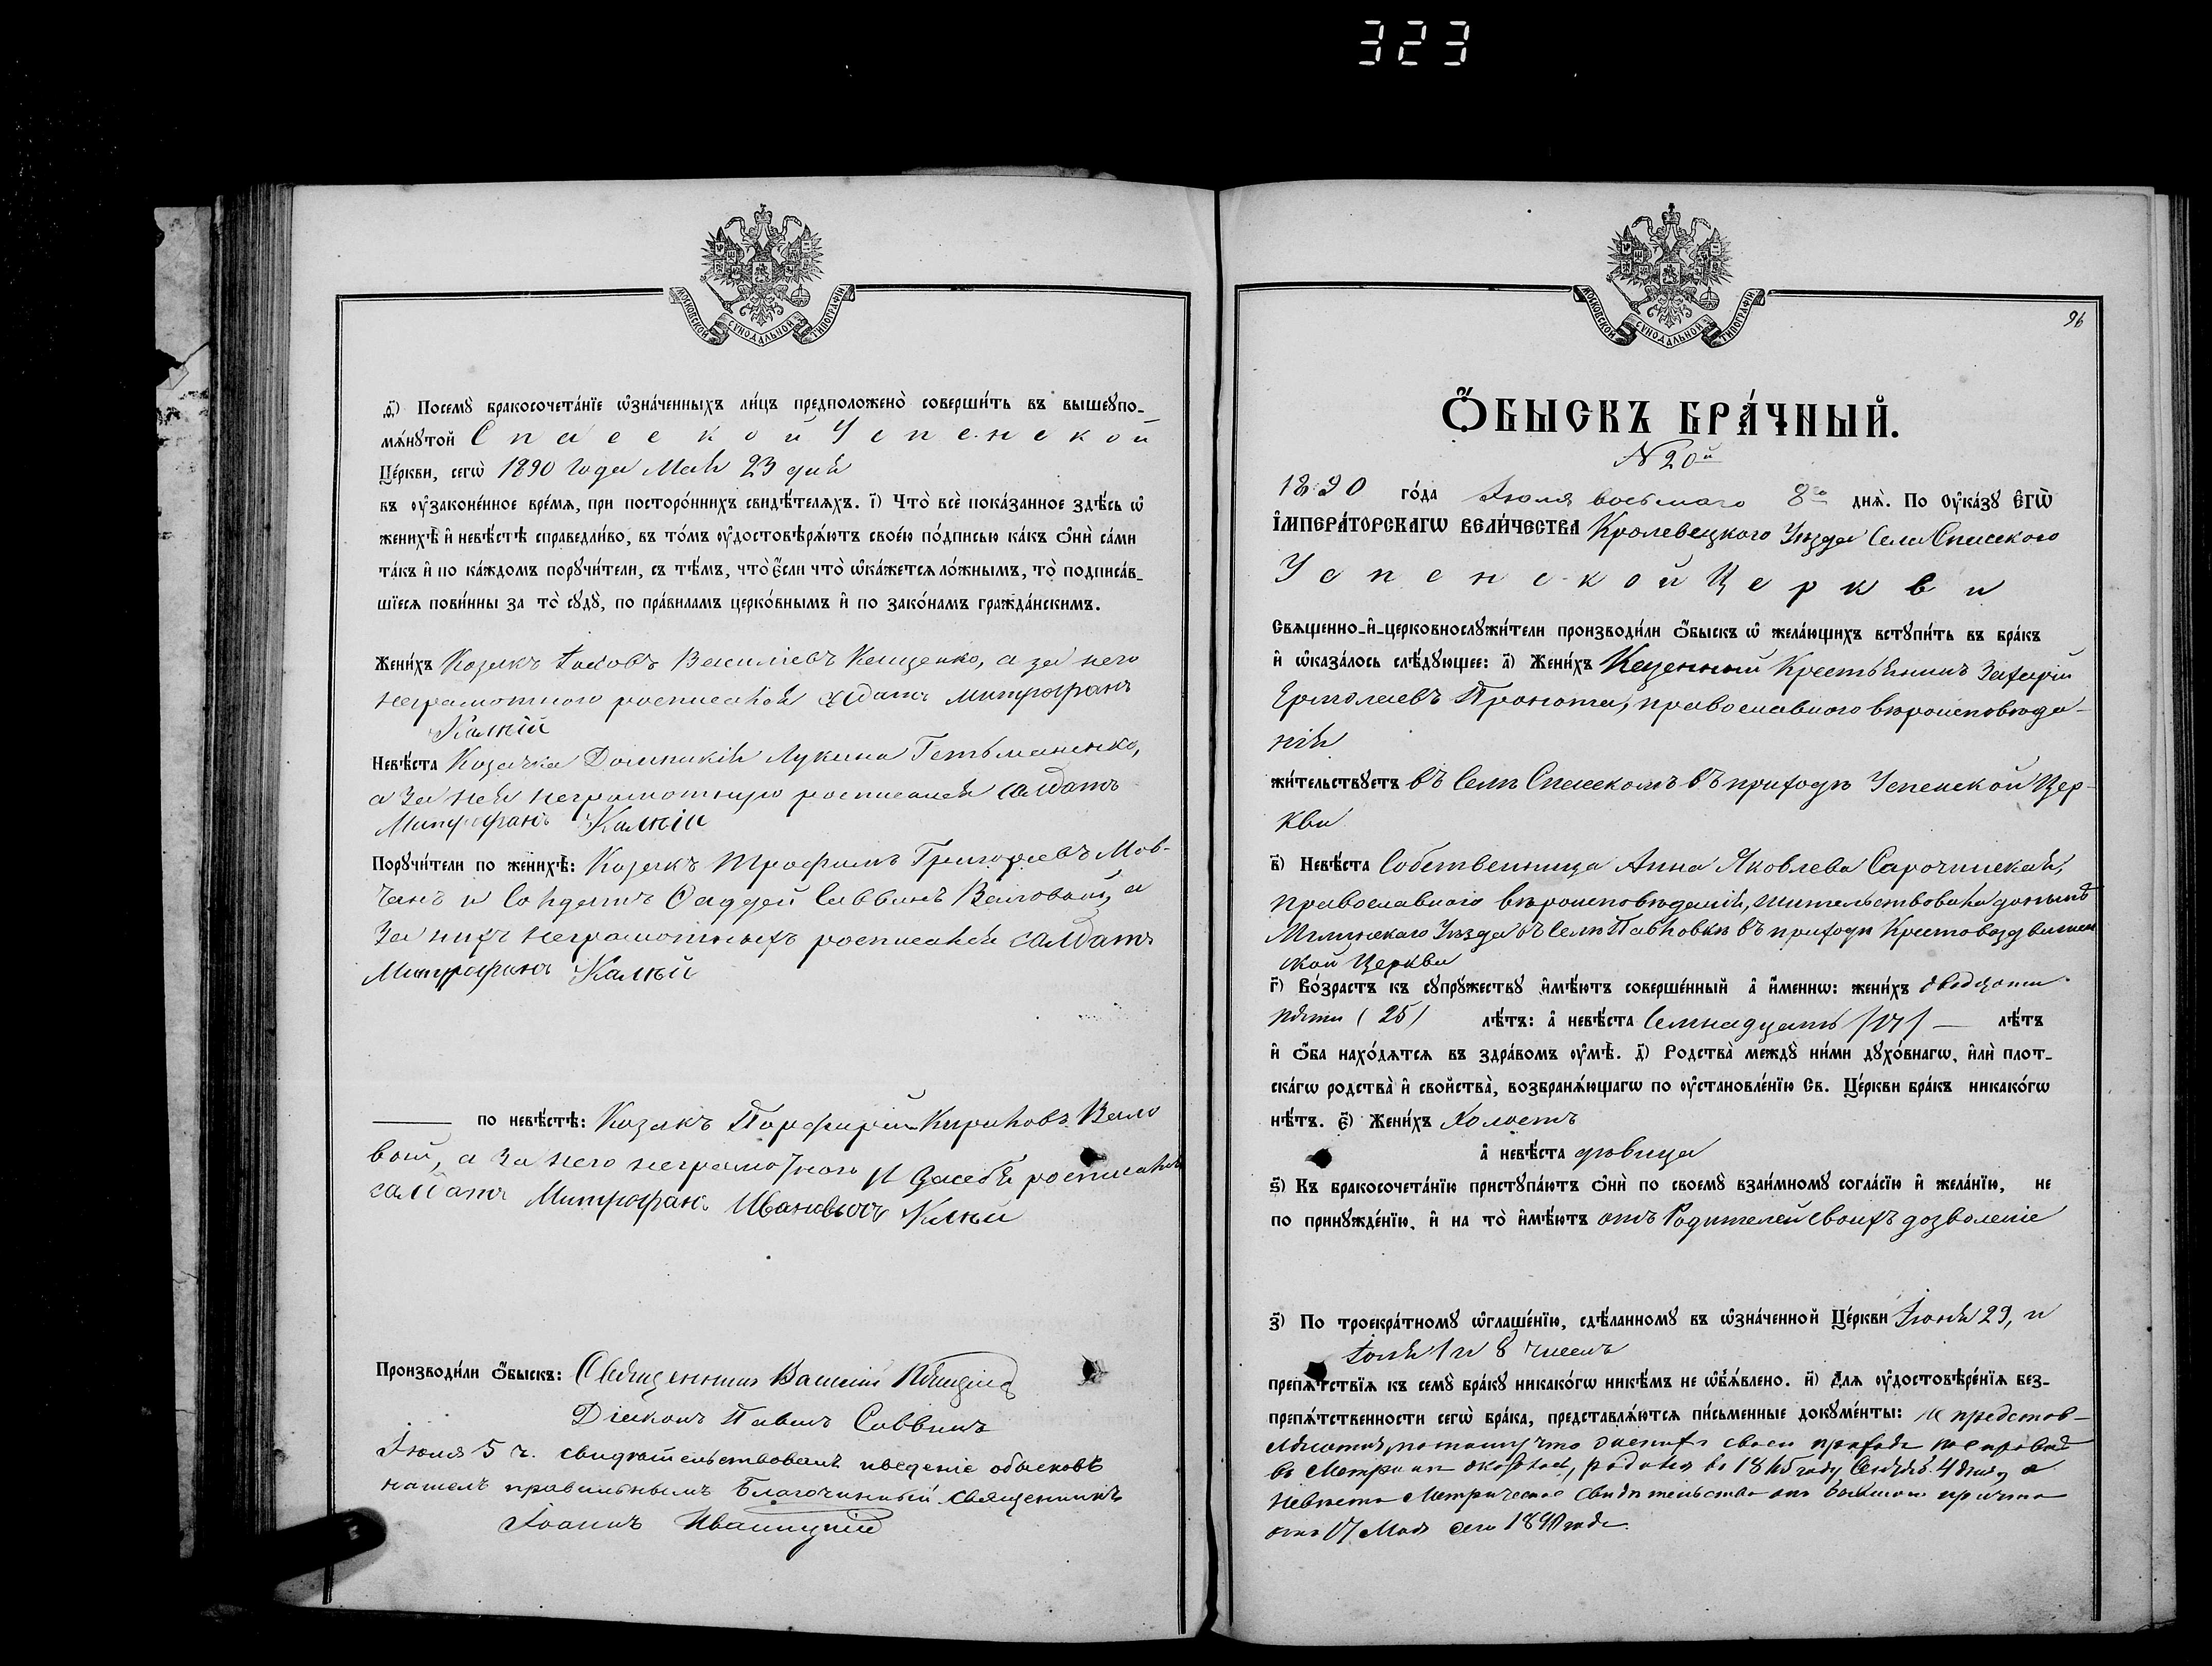 323
МОСКОВСКОЙ СѴНОДАЛЬНОЙ ТИПОГРАФІИ
ѳ҃) Посемꙋ̀ бракосочета́нїе ѡ҆зна́ченныхъ ли́цъ предположено̀ соверши́ть въ вышеꙋпо-
мѧ́нꙋтой Спасской Успенской
Це́ркви, сегѡ̀ 1890 года Мая 23 дня
въ ᲂу҆зако́ненное вре́мѧ, при посторо́ннихъ свидѣ́телѧхъ. і҃) Что̀ всѐ пока́занное здѣ́сь ѡ҆
женихѣ̀ и҆ невѣ́стѣ справедли́во, въ то́мъ ᲂу҆достовѣрѧ́ютъ свое́ю по́дписью ка́къ ѻ҆нѝ са́ми
та́къ и҆ по ка́ждомъ порꙋчи́тели, съ тѣ́мъ, что̀ є҆́сли что̀ ѡ҆ка́жетсѧ ло́жнымъ, то̀ подписа́в-
шїесѧ пови́нны за то̀ сꙋдꙋ̀, по пра́виламъ церко́внымъ и҆ по зако́намъ гражда́нскимъ.
Жени́хъ Козакъ Іаковъ Васильевъ Кащенко, а за него
неграмотного росписался салдатъ Митрофанъ
Калній
Невѣ́ста Козачка Домникія Лукина Гетьманенко,
а за нея неграмотную росписался салдатъ
Митрофанъ Калній
Порꙋчи́тели по женихѣ̀: Козакъ Трофимъ Григорьевъ Мов-
чанъ и Солдатъ Фаддей Саввинъ Валовой, а
за нихъ неграмотныхъ росписался салдатъ
Митрофанъ Калній
по невѣ́стѣ: Козакъ Порфирій Вало
вой, а за него неграмотного и за себя росписался
салдатъ Митрофанъ Ивановъ Калній
Производи́ли ѻ҆́быскъ: Священникъ Василій
Діаконъ Павелъ Саввинъ
Іюля 5 ч. свидѣтельствовалъ введеніе обысковъ
нашелъ правильнымъ Благочинный Священникъ
Іоаннъ Иваницкій
МОСКОВСКОЙ СѴНОДАЛЬНОЙ ТИПОГРАФІИ
96
Ѻ҆́БЫСКЪ БРА́ЧНЫЙ.
№ 20й
1890 го́да Іюля восьмаго 8го днѧ̀. По ᲂу҆ка́зꙋ Є҆гѡ̀
І҆мпера́торскагѡ вели́чества Кролевецкого Уѣзда Села Спаскаго
Успенской Церкви
Свѧщенно-и҆-церковнослꙋжи́тели производи́ли ѻ҆́быскъ ѡ҆ жела́ющихъ встꙋпи́ть въ бра́къ
и҆ ѡ҆каза́лось слѣ́дꙋющее: а҃) Жени́хъ Казенный Крестьянинъ Захарій
Ермолаевъ Пронота, православного вѣроисповѣда-
нія
жи́тельствꙋетъ въ Селѣ Спаскомъ въ приходѣ Успенской Цер-
кви
в҃) Невѣ́ста Собственница Анна Яковлева Сарочинская,
православного вѣроисповѣданія, жительствовала донынѣ
Мглинскаго Уѣзда въ селѣ Павловкѣ въ приходѣ Крестовоздвижен
ской Церкви
г҃) Во́зрастъ къ сꙋпрꙋ́жествꙋ и҆мѣ́ютъ соверше́нный а҆̀ и҆́меннѡ: жени́хъ двадцати
пяти (25) лѣ́тъ: а҆̀ невѣ́ста Семнадцать /17/ — лѣ́тъ
и҆ ѻ҆́ба нахо́дѧтсѧ въ здра́вомъ ᲂу҆мѣ̀. д҃) Родства̀ междꙋ̀ ни́ми дꙋхо́внагѡ, и҆лѝ плот-
ска́гѡ родства̀ и҆ сво́йства̀, возбранѧ́ющагѡ по ᲂу҆становле́нїю Св. Це́ркви бра́къ никако́гѡ
нѣ́тъ. є҃) Жени́хъ Холостъ
а҆̀ невѣ́ста дѣвица
ѕ҃) Къ бракосочета́нїю пристꙋпа́ютъ ѻ҆нѝ по своемꙋ̀ взаи́мномꙋ согла́сїю и҆ жела́нїю, не
по принꙋжде́нїю, и҆ на то̀ и҆мѣ́ютъ отъ Родителей своихъ дозволеніе
з҃) По троекра́тномꙋ ѡ҆глаше́нїю, сдѣ́ланномꙋ въ ѡ҆зна́ченной Це́ркви Іюня 29, и
Іюля 1 и 8 числъ
препѧ́тствїѧ къ семꙋ̀ бра́кꙋ никако́гѡ никѣ́мъ не ѡ҆б̾ѧ́влено. и҃) Длѧ ᲂу҆достовѣре́нїѧ без-
препѧ́тственности сегѡ̀ бра́ка, представлѧ́ютсѧ пи́сьменные докꙋме́нты: не представ-
ляются, потому что женихъ своего прихода по справкѣ
въ Метрикахъ оказалось, родился въ 1865 году Сентября 4 дня, а
невѣста Метрическое свидѣтельство отъ причта
отъ 17 Мая сего 1890 года.